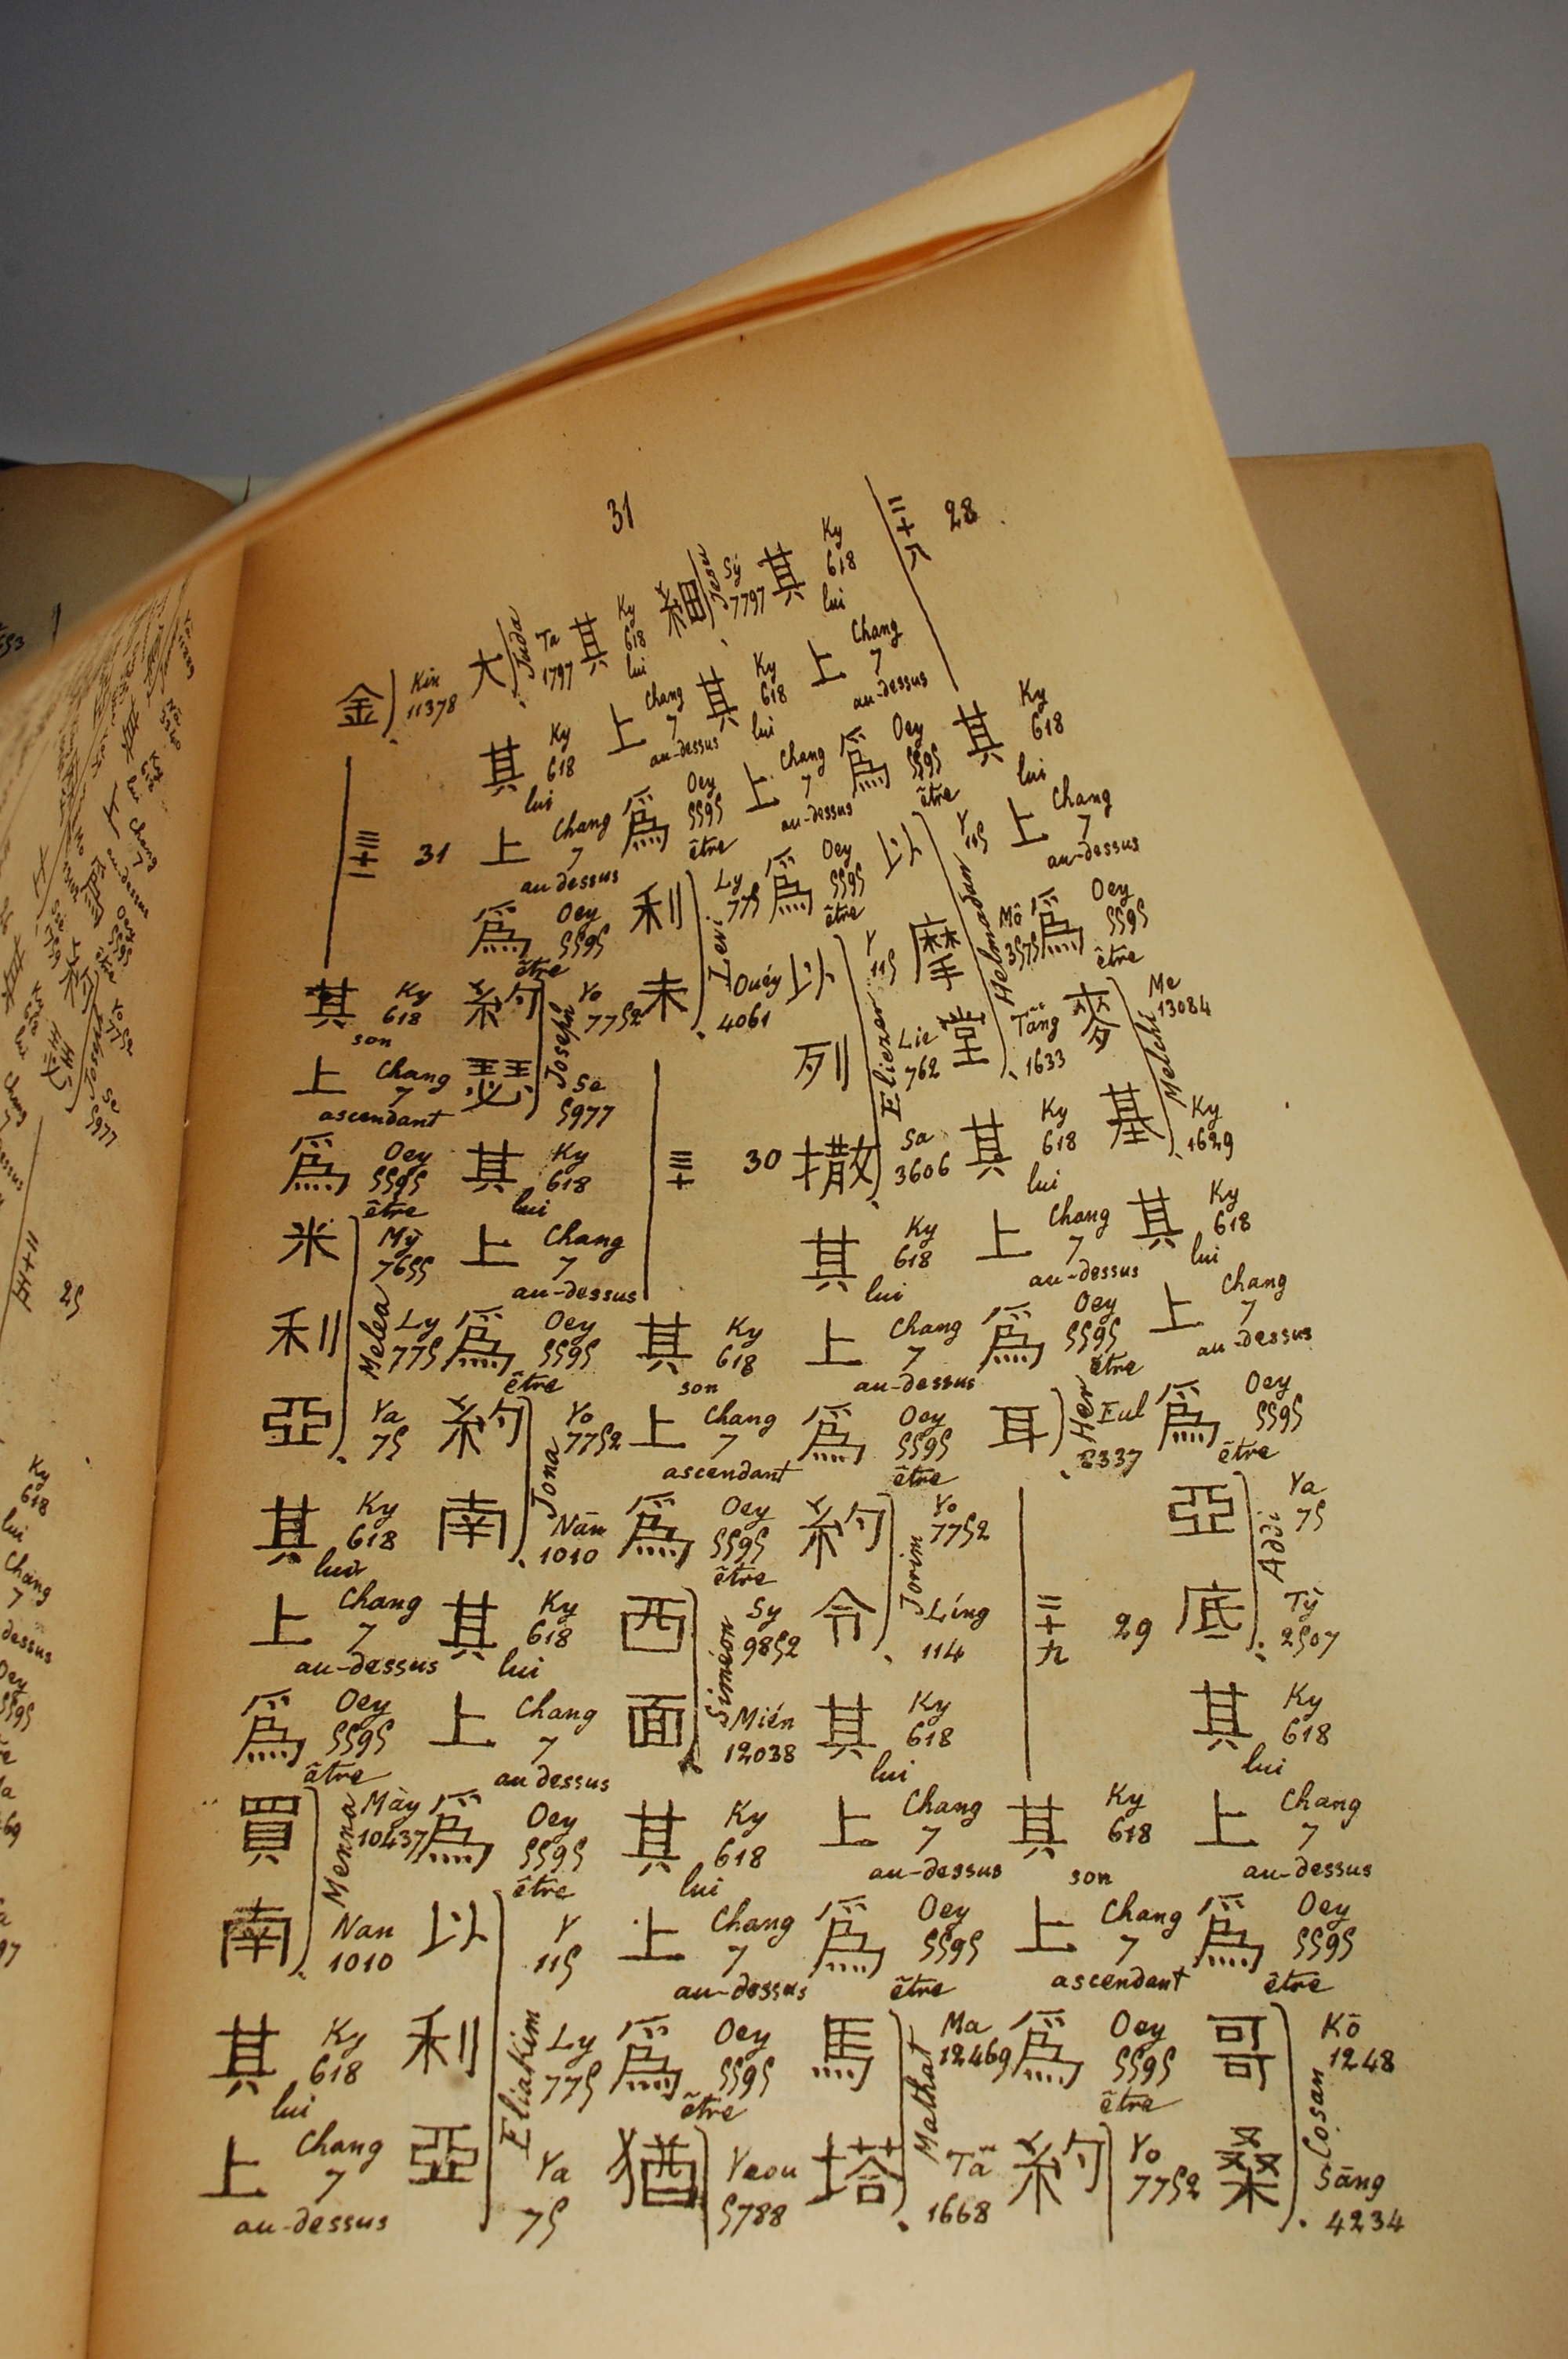 31
二十八 28
其 Ky 618 lui
上 Chang 7 au-dessus
爲 Oey 5595 être
麥 Me 13084
Melchi
基 Ky 1629
其 Ky 618 lui
上 Chang 7 au-dessus
爲 Oey 5595 être
亞 Ya 75
Addi
底 Tỳ 2507
其 Ky 618 lui
上 Chang 7 au-dessus
爲 Oey 5595 être
哥 Kō 1248
Cosan
桑 Sāng 4234
其 Ky 618 lui
上 Chang 7 au-dessus
爲 Oey 5595 être
以 Y 115
Helmadan
摩 Mô 3575
堂 Tâng 1633
其 Ky 618 lui
上 Chang 7 au-dessus
爲 Oey 5595 être
耳 Eul 8337
Her
二十九 29
其 Ky 618 son
上 Chang 7 ascendant
爲 Oey 5595 être
約 Yo 7752
細 Sý 7797
Jesu
其 Ky 618 lui
上 Chang 7 au-dessus
爲 Oey 5595 être
以 Y 115
Eliezer
列 Lie 762
撒 Sa 3606
其 Ky 618 lui
上 Chang 7 au-dessus
爲 Oey 5595 être
約 Yo 7752
Jorim
令 Líng 114
其 Ky 618 lui
上 Chang 7 au-dessus
爲 Oey 5595 être
馬 Ma 12469
Mathat
塔 Tă 1668
其 Ky 618 lui
上 Chang 7 au-dessus
爲 Oey 5595 être
利 Ly 775
Levi
未 Ouéy 4061
三十 30
其 Ky 618 son
上 Chang 7 ascendant
爲 Oey 5595 être
西 Sy 9852
Siméon
面 Mién 12038
其 Ky 618 lui
上 Chang 7 au-dessus
爲 Oey 5595 être
猶 Yeou 5788
大 Ta 1797
Juda
其 Ky 618 lui
上 Chang 7 au dessus
爲 Oey 5595 être
約 Yo 7752
Joseph
瑟 Se 5977
其 Ky 618 lui
上 Chang 7 au-dessus
爲 Oey 5595 être
約 Yo 7752
Jona
南 Nān 1010
其 Ky 618 lui
上 Chang 7 au dessus
爲 Oey 5595 être
以 Y 115
Eliakim
利 Ly 775
亞 Ya 75
金 Kin 11378
三十一 31
其 Ky 618 son
上 Chang 7 ascendant
爲 Oey 5595 être
米 Mỳ 7655
Melea
利 Ly 775
亞 Ya 75
其 Ky 618 lui
上 Chang 7 au-dessus
爲 Oey 5595 être
買 Mày 10437
Menna
南 Nan 1010
其 Ky 618 lui
上 Chang 7 au-dessus
二十五 25
Ky 618 lui
Chang 7